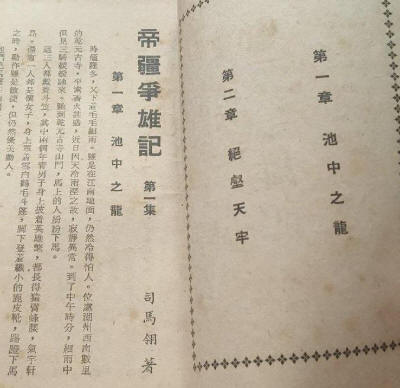 第一章 池中之龍
第二章 絕壑天牢
帝疆爭雄記 第一集
司馬翎著
第一章 池中之龍
時值隆冬，又下着毛毛細雨。雖是在江南地面，仍然冷得怕人。位處湖州西南數里
的乾元古寺，平素香火甚盛，近日因天冷雨溼之故，寂靜異常。到了中午時分，細雨中
但見三騎緩緩馳來。到乾元古寺山門，馬上的人紛紛下馬。
這三人都戴着斗笠，其中兩個年青男子身上披着英雄氅，都長得猿臂蜂腰，氣宇軒
昂。僅餘一人却是個女子，身上罩着雪白鶴毛斗篷，脚下登着纖小的鹿皮靴，踏蹬下馬
之時，動作雖是敏捷，但仍然優美動人。